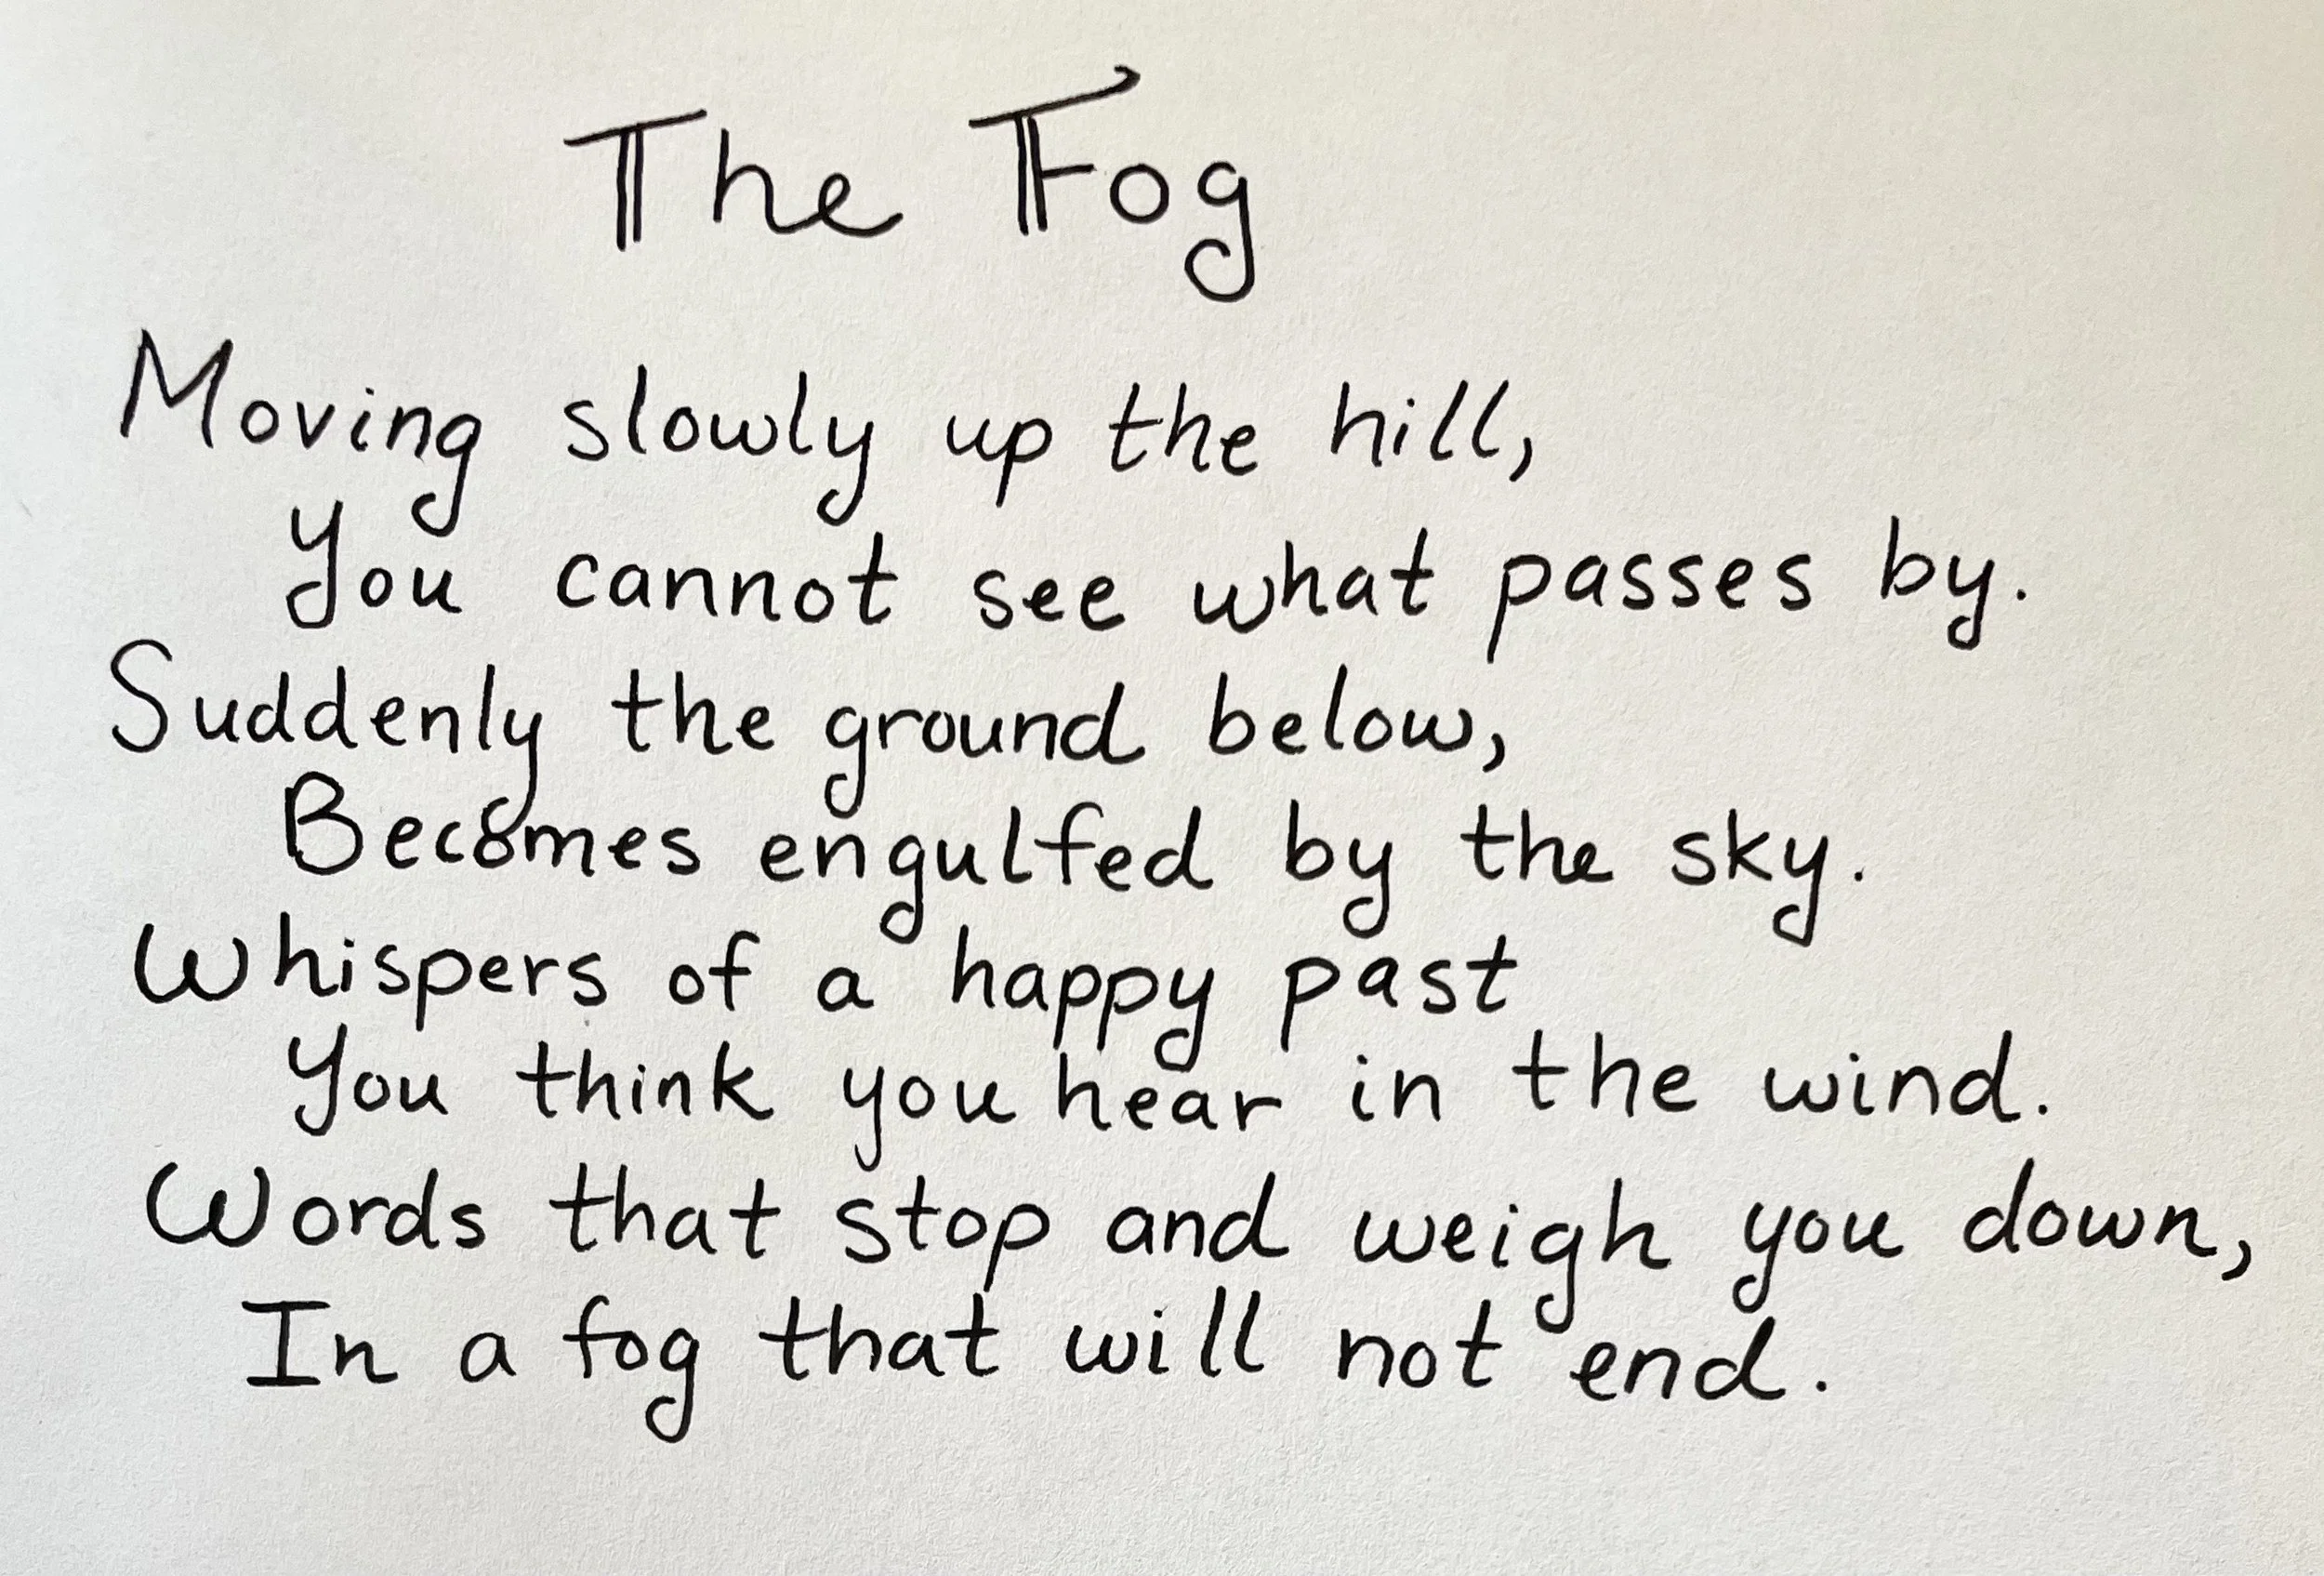 The Fog
Moving slowly up the hill,
You cannot see what passes by.
Suddenly the ground below,
Becomes engulfed by the sky.
Whispers of a happy past
You think you hear in the wind.
Words that stop and weigh you down,
In a fog that will not end.